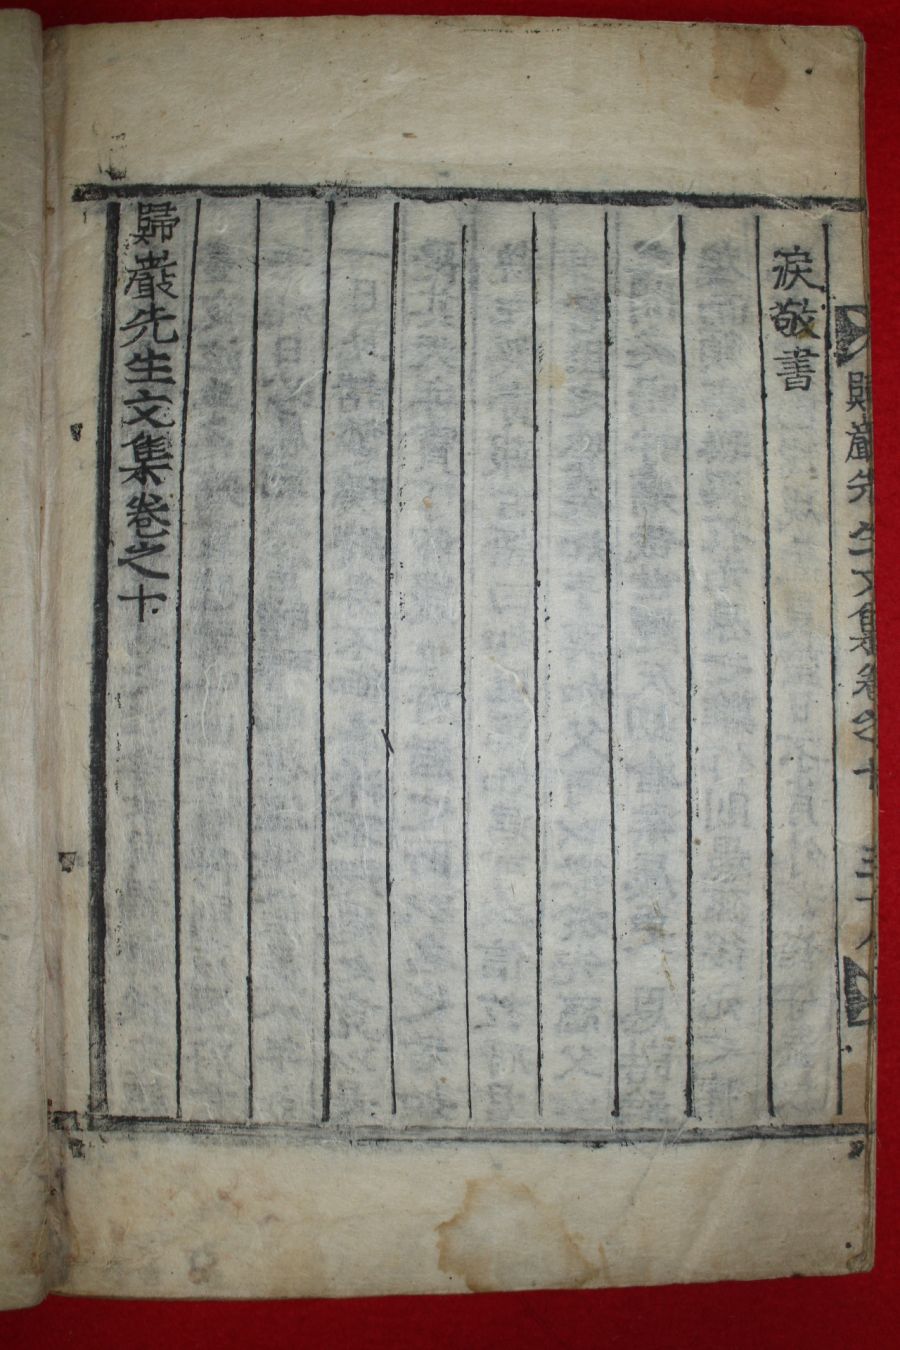 歸巖先生文集卷之十 三十八
淚敬書
歸巖先生文集卷之十